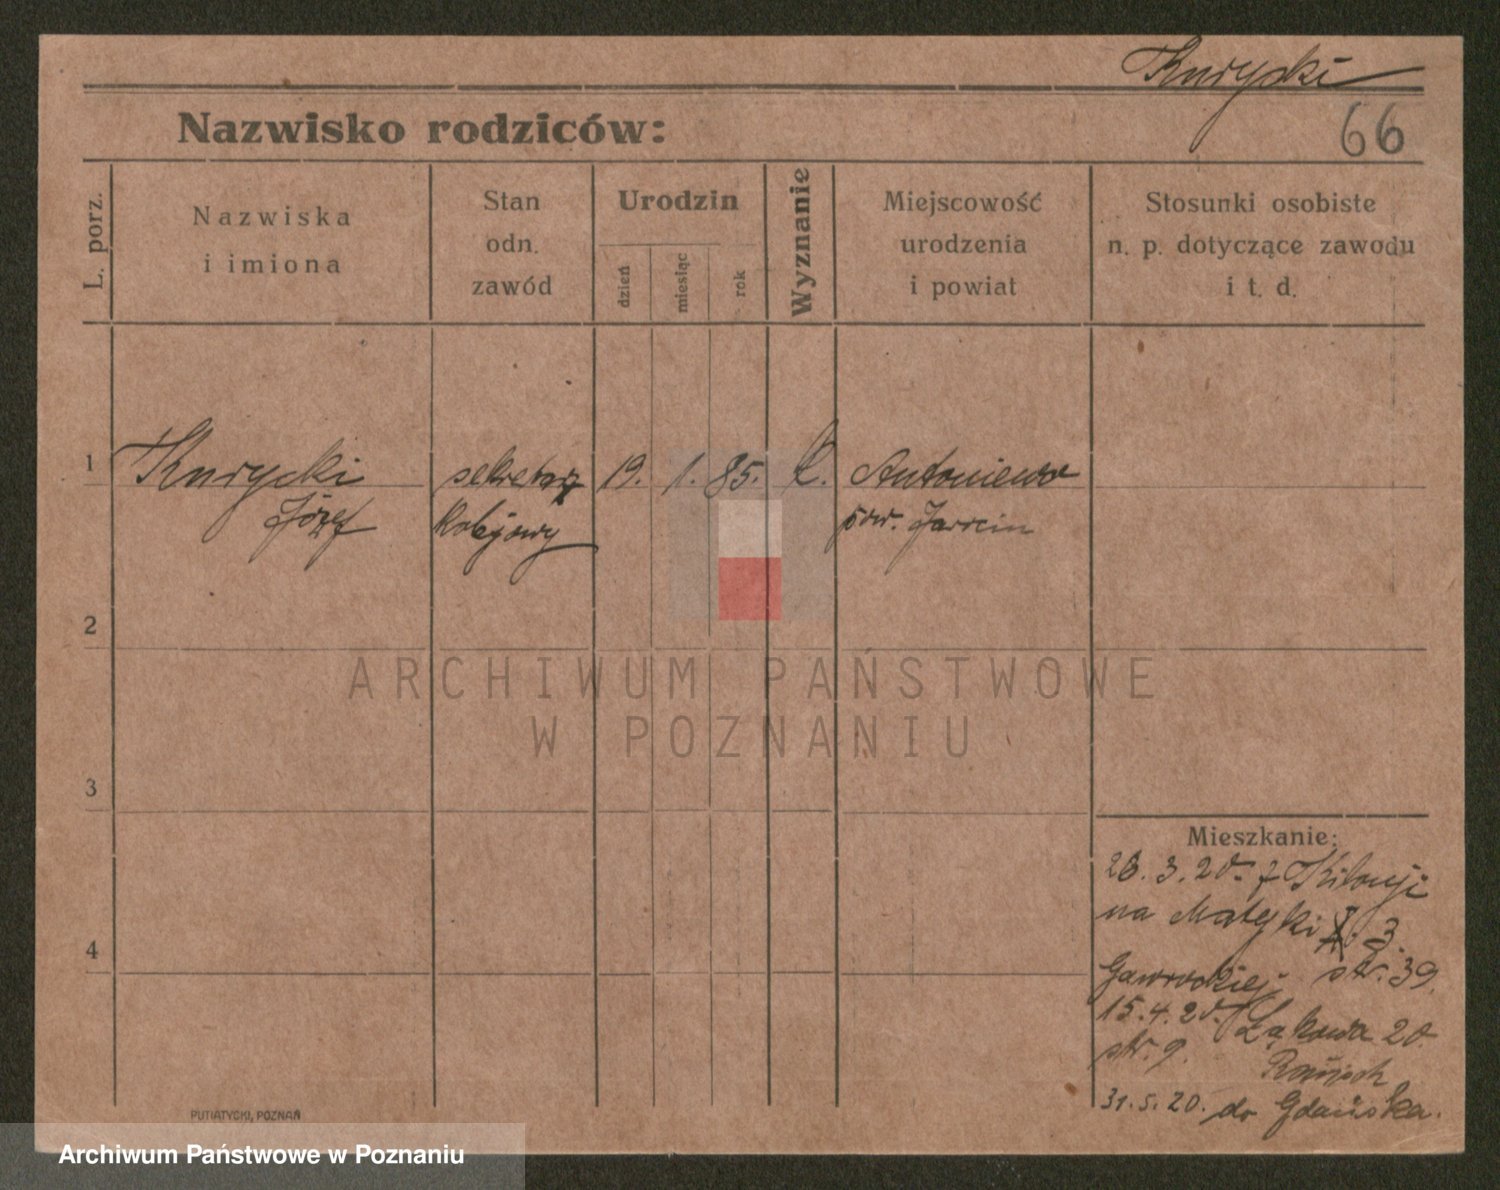 Kurycki
66
Nazwisko rodziców:
L. porz.
Nazwiska
i imiona
Stan
odn.
zawód
Urodzin
dzień
miesiąc
rok
Wyznanie
Miejscowość
urodzenia
i powiat
Stosunki osobiste
n. p. dotyczące zawodu
i t. d.
1 Kurycki sekretarz 19. 1. 85. k. Antoniewo
Józef kolejowy pow. Jarocin
2
3
4
Mieszkanie:
23.3.20. z
na Matejki 3.
str. 39.
15.4.20. Łąkowa 20
str. 9.
31.5.20. do Gdańska.
PUTIATYCKI, POZNAŃ
ARCHIWUM PAŃSTWOWE
W POZNANIU
Archiwum Państwowe w Poznaniu